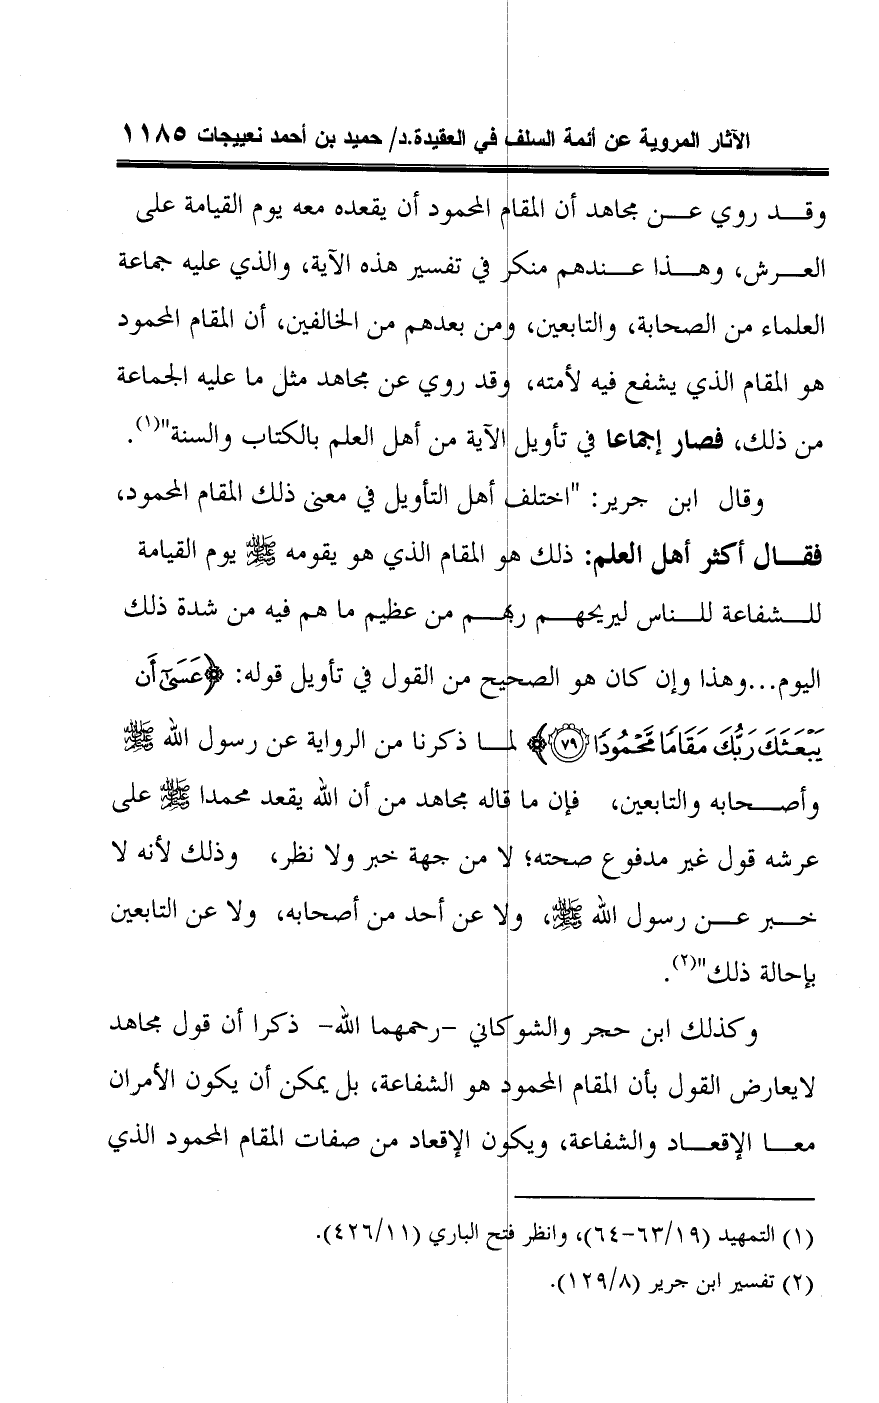 الآثار المروية عن أئمة السلف في العقيدة.د/ حميد بن أحمد نعييجات ١١٨٥
وقد روي عن مجاهد أن المقام المحمود أن يقعده معه يوم القيامة على
العرش، وهذا عندهم منكر في تفسير هذه الآية، والذي عليه جماعة
العلماء من الصحابة، والتابعين، ومن بعدهم من الخالفين، أن المقام المحمود
هو المقام الذي يشفع فيه لأمته، وقد روي عن مجاهد مثل ما عليه الجماعة
من ذلك، فصار إجماعا في تأويل الآية من أهل العلم بالكتاب والسنة"(١).
وقال ابن جرير: "اختلف أهل التأويل في معنى ذلك المقام المحمود،
فقال أكثر أهل العلم: ذلك هو المقام الذي هو يقومه ﷺ يوم القيامة
للشفاعة للناس ليريحهم ربهم من عظيم ما هم فيه من شدة ذلك
اليوم...وهذا وإن كان هو الصحيح من القول في تأويل قوله: ﴿عَسَىٰٓ أَن
يَبۡعَثَكَ رَبُّكَ مَقَامٗا مَّحۡمُودٗا ٧٩﴾ لما ذكرنا من الرواية عن رسول الله ﷺ
وأصحابه والتابعين، فإن ما قاله مجاهد من أن الله يقعد محمدا ﷺ على
عرشه قول غير مدفوع صحته؛ لا من جهة خبر ولا نظر، وذلك لأنه لا
خبر عن رسول الله ﷺ، ولا عن أحد من أصحابه، ولا عن التابعين
بإحالة ذلك"(٢).
وكذلك ابن حجر والشوكاني -رحمهما الله- ذكرا أن قول مجاهد
لايعارض القول بأن المقام المحمود هو الشفاعة، بل يمكن أن يكون الأمران
معا الإقعاد والشفاعة، ويكون الإقعاد من صفات المقام المحمود الذي
(١) التمهيد (٦٣/١٩-٦٤)، وانظر فتح الباري (٤٢٦/١١).
(٢) تفسير ابن جرير (١٢٩/٨).